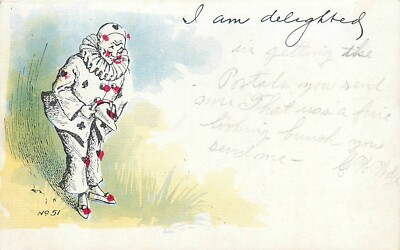 I am delighted
in getting the
Postals you sent
me. That was a fine
looking bunch you
send me —
No. 51